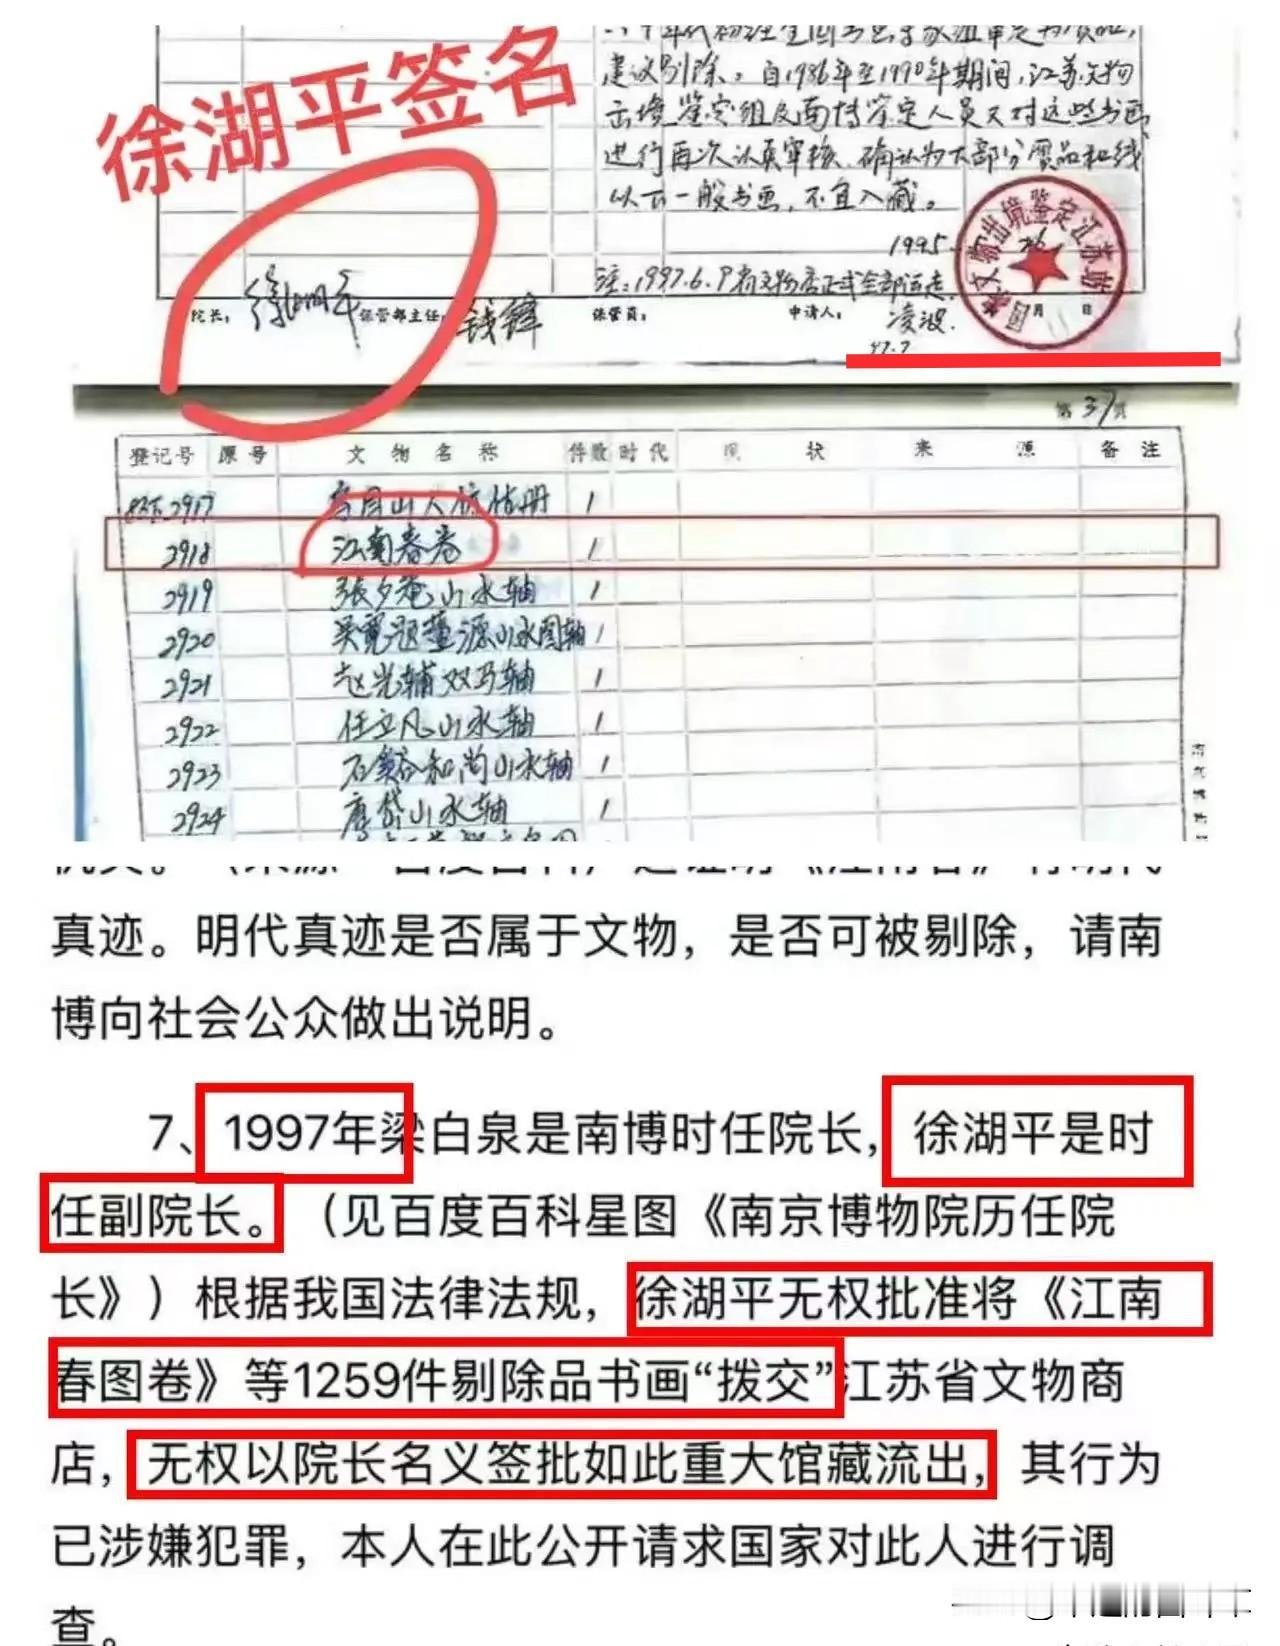 徐湖平签名
建议剔除。自1986年至1990年期间,江苏文物
出境鉴定组及南博鉴定人员又对这些书画
进行再次认真审核,确认为大部分赝品和线
以下一般书画,不宜入藏。
1995.
国家文物出境鉴定江苏站
月 日
注:1997.6.9
院长: 徐湖平 保管部主任: 钱锋 保管员: 申请人: 凌波.
97.7
第37页
登记号 原号 文物名称 件数 时代 现状 来源 备注
2917 1
2918 江南春卷 1
2919 张夕庵山水轴 1
2920 吴宽题董源山水图轴 1
2921 赵光辅双马轴 1
2922 任立凡山水轴 1
2923 石溪和尚山水轴 1
2924 山水轴 1
真迹。明代真迹是否属于文物,是否可被剔除,请南
博向社会公众做出说明。
7、1997年梁白泉是南博时任院长,徐湖平是时
任副院长。(见百度百科星图《南京博物院历任院
长》)根据我国法律法规,徐湖平无权批准将《江南
春图卷》等1259件剔除品书画“拨交”江苏省文物商
店,无权以院长名义签批如此重大馆藏流出,其行为
已涉嫌犯罪,本人在此公开请求国家对此人进行调
查。